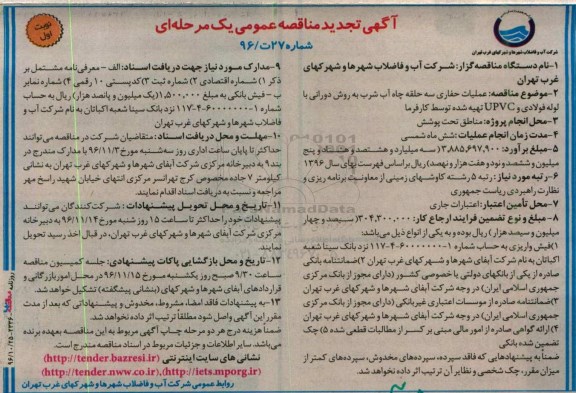 آگهی تجدید مناقصه عمومی یک مرحله‌ای
شماره ۲۷ت/۹۶
نوبت اول
شرکت آب و فاضلاب شهرها و شهرکهای غرب تهران
۱-نام دستگاه مناقصه گزار: شرکت آب و فاضلاب شهرها و شهرکهای
غرب تهران
۲-موضوع مناقصه: عملیات حفاری سه حلقه چاه آب شرب به روش دورانی با
لوله فولادی و UPVC تهیه شده توسط کارفرما
۳-محل انجام پروژه: مناطق تحت پوشش
۴-مدت زمان انجام عملیات: شش ماه شمسی
۵-مبلغ برآورد: ۳،۸۸۵،۶۹۷،۹۰۰ (سه میلیارد و هشتصد و هشتاد و پنج
میلیون و ششصد و نود و هفت هزار و نهصد) ریال براساس فهرست بهای سال ۱۳۹۶
۶-رتبه مورد نیاز: رتبه ۵ رشته کاوشهای زمینی از معاونت برنامه ریزی و
نظارت راهبردی ریاست جمهوری
۷-محل تأمین اعتبار: اعتبارات جاری
۸-مبلغ و نوع تضمین فرایند ارجاع کار: ۳۰۴،۳۰۰،۰۰۰ (سیصد و چهار
میلیون و سیصد هزار) ریال بوده و به یکی از انواع ذیل می‌باشد:
۱)فیش واریزی به حساب شماره ۱-۶۰۰۰۰۰۰-۴-۱۱۷ نزد بانک سینا شعبه
اکباتان به نام شرکت آبفای شهرها و شهرکهای غرب تهران ۲)ضمانتنامه بانکی
صادره از یکی از بانکهای دولتی یا خصوصی کشور (دارای مجوز از بانک مرکزی
جمهوری اسلامی ایران) در وجه شرکت آبفای شهرها و شهرکهای غرب تهران
۳)ضمانتنامه صادره از موسسات اعتباری غیربانکی (دارای مجوز از بانک مرکزی
جمهوری اسلامی ایران) در وجه شرکت آبفای شهرها و شهرکهای غرب تهران
۴)ارائه گواهی صادره از امور مالی مبنی بر کسر از مطالبات قطعی شده ۵) چک
تضمین شده بانکی
ضمناً به پیشنهادهایی که فاقد سپرده، سپرده‌های مخدوش، سپرده‌های کمتر از
میزان مقرر، چک شخصی و نظایر آن ترتیب اثر داده نخواهد شد.
۹-مدارک مورد نیاز جهت دریافت اسناد: الف - معرفی‌نامه مشتمل بر
ذکر ۱) شماره اقتصادی ۲) شماره ثبت ۳) کدپستی ۱۰ رقمی ۴) شماره نمابر
ب - فیش بانکی به مبلغ ۱،۵۰۰،۰۰۰ (یک میلیون و پانصد هزار) ریال به حساب
شماره ۱-۶۰۰۰۰۰۰-۴-۱۱۷ نزد بانک سینا شعبه اکباتان به نام شرکت آب و
فاضلاب شهرها و شهرکهای غرب تهران
۱۰-مهلت و محل دریافت اسناد: متقاضیان شرکت در مناقصه می‌توانند
حداکثر تا پایان ساعت اداری روز سه‌شنبه مورخ ۹۶/۱۱/۳ با مدارک مندرج در
بند ۹ به دبیرخانه مرکزی شرکت آبفای شهرها و شهرکهای غرب تهران به نشانی
کیلومتر ۷ جاده مخصوص کرج تهرانسر مرکزی انتهای خیابان شهید راسخ مهر
مراجعه و نسبت به دریافت اسناد اقدام نمایند.
۱۱-تاریخ و محل تحویل پیشنهادات: شرکت کنندگان می‌توانند
پیشنهادات خود را حداکثر تا ساعت ۱۵ روز شنبه مورخ ۹۶/۱۱/۱۴ به دبیرخانه
مرکزی شرکت آبفای شهرها و شهرکهای غرب تهران، در قبال اخذ رسید تحویل
نمایند.
۱۲-تاریخ و محل بازگشایی پاکات پیشنهادی: جلسه کمیسیون مناقصه
ساعت ۹/۳۰ صبح روز یکشنبه مورخ ۹۶/۱۱/۱۵ در محل امور بازرگانی و
قراردادهای آبفای شهرها و شهرکهای غرب تهران (نشانی پیشگفته) تشکیل خواهد شد.
۱۳-به پیشنهادات فاقد امضا، مشروط، مخدوش و پیشنهاداتی که بعد از مدت
مقرر این آگهی واصل شود مطلقاً ترتیب اثر داده نخواهد شد.
ضمناً هزینه درج هر دو مرحله چاپ آگهی مربوط به این مناقصه به‌عهده برنده
می‌باشد. سایر اطلاعات و جزئیات مربوط در اسناد مناقصه مندرج است.
نشانی های سایت اینترنتی (http://tender.bazresi.ir)
(http://tender.nww.co.ir),(http://iets.mporg.ir)
روابط عمومی شرکت آب و فاضلاب شهرها و شهرکهای غرب تهران